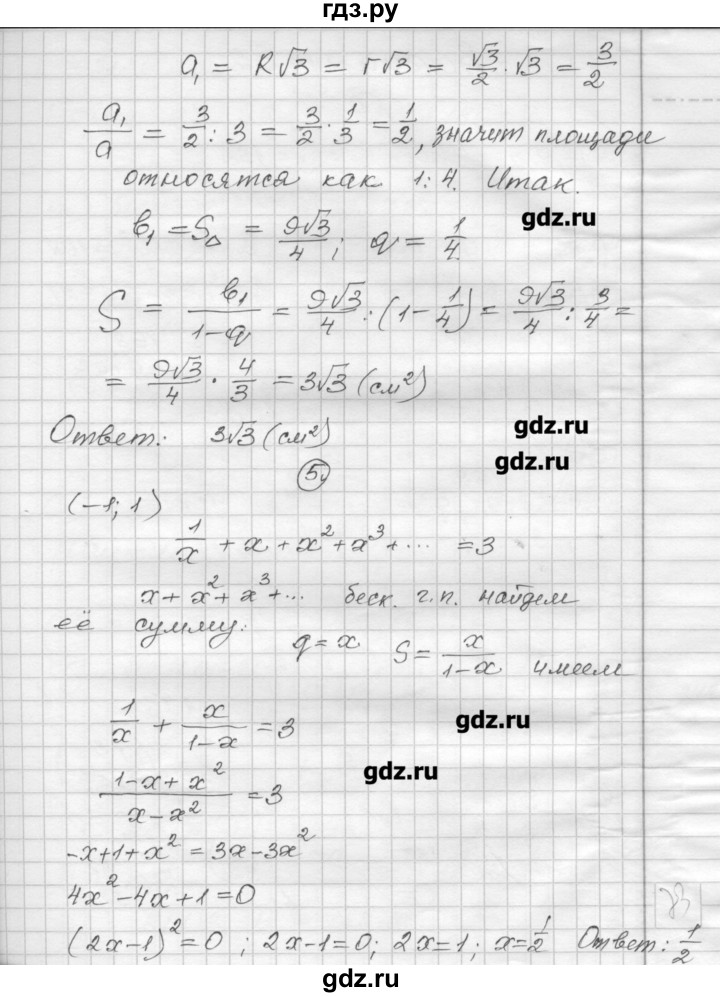 гдз.ру
a₁ = R√3 = r√3 = √3/2 · √3 = 3/2
a₁/a = 3/2 : 3 = 3/2 · 1/3 = 1/2, значит площади
относятся как 1:4. Итак.
gdz.ru
b₁ = S△ = 9√3/4; q = 1/4.
S = b₁/(1-q) = 9√3/4 : (1 - 1/4) = 9√3/4 : 3/4 =
= 9√3/4 · 4/3 = 3√3 (см²)
Ответ: 3√3 (см²)
gdz.ru
gdz.ru
5.
(-1; 1)
1/x + x + x² + x³ + ... = 3
x + x² + x³ + ... беск. г.п. найдем
её сумму: q = x S = x/(1-x) имеем
1/x + x/(1-x) = 3
gdz.ru
gdz.ru
(1-x+x²)/(x-x²) = 3
-x+1+x² = 3x-3x²
4x²-4x+1=0
(2x-1)²=0; 2x-1=0; 2x=1; x=1/2 Ответ: 1/2
gdz.ru